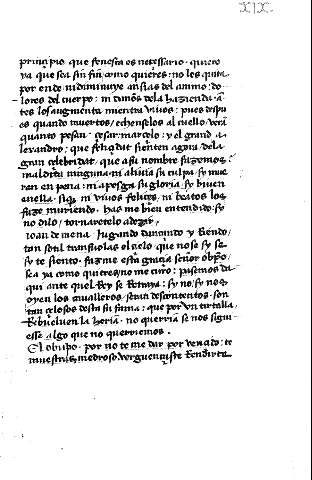 XIX.
principio que fenesca es necessario. quiero
ya que sea sin fin como quieres: no les quita
por ende ni diminuye ansias del animo: do
lores del cuerpo: ni daños de la hazienda. a
tes los augmenta mientra viuos: pues despu
es quando muertos, echenselos al cuello, verā
quanto pesan. cesar: marcelo: y el grand a
levandre: que sienten agora de la
gran celebridat que a su nombre fazemos
maldita ninguna: ni aliuia su culpa. sy mue
ran en pena: ni apesga su gloria. sy biuen
enella. ni viuos felices, ni beatos los
faze muriendo. has me bien entendido: sy
no dilo, tornaretelo adezir.
Ioan de mena. Jugando burlando y Riendo,
tan sotil trasuolas el velo que no se sy se
sy te siento. fazme esta gracia señor obpo.
sea ya como quieres no me curo: pasemos da
qui ante quel Rey se Retraya: sy no, sy nos
oyen los caualleros seran descontentos. son
tan celosos desta su fama: que por vn tirtalla,
Rebueluen la no querria se nos sigui
esse algo que no querriemos.
El obispo. por no te me dar por vencido: te
muestras medroso verguença te Rendirte